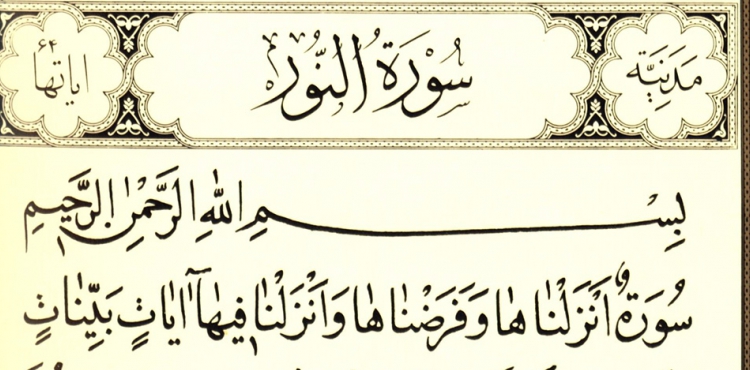 مَدَنِيَّة سُوْرَةُ النُّورِ اياتها ٦٤
بِسْمِ اللهِ الرَّحْمٰنِ الرَّحٖيمِ
سُورَةٌ اَنْزَلْنَا هَا وَفَرَضْنَا هَا وَاَنْزَلْنَا فٖيهَٓا اٰيَاتٍ بَيِّنَاتٍ